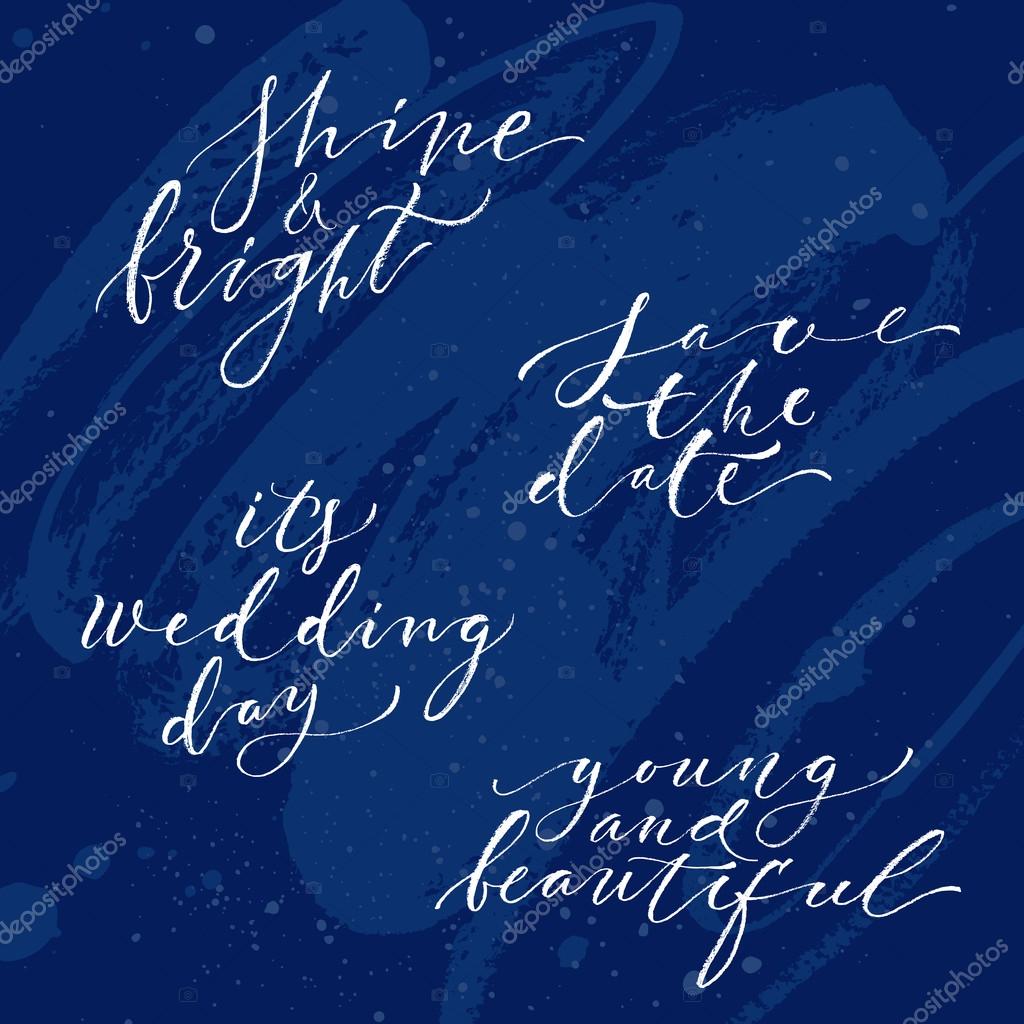 shine
&
bright
save
the
date
its
wedding
day
young
and
beautiful
depositphotos
depositphotos
depositphotos
depositphotos
depositphotos
depositphotos
depositphotos
depositphotos
depositphotos
depositphotos
depositphotos
depositphotos